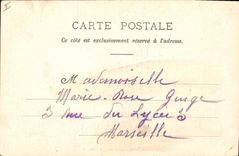 I
CARTE POSTALE
Ce côté est exclusivement réservé à l'adresse.
Mademoiselle
Marie-Rose
3 rue du Lycée 3
Marseille